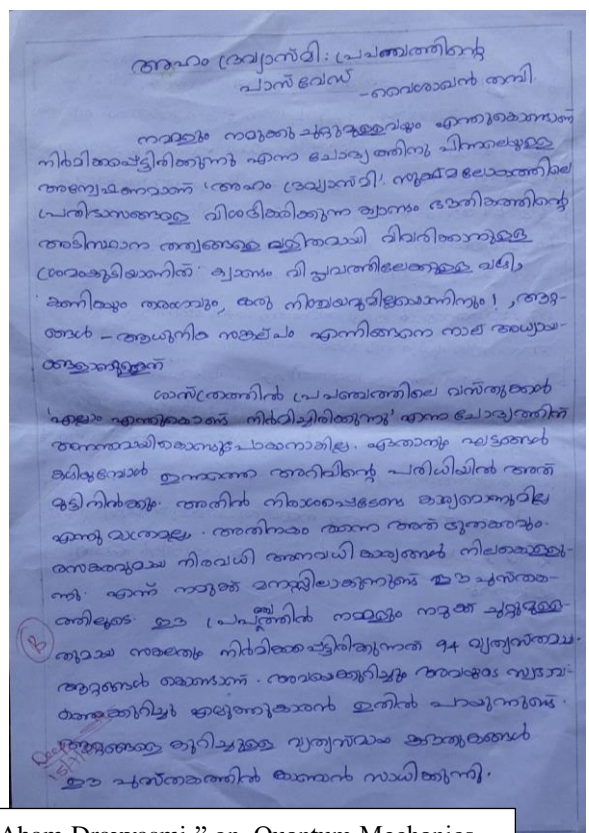 അഹം ദ്രവ്യാസ്മി : പ്രപഞ്ചത്തിന്റെ
പാസ്‌വേഡ്
-വൈശാഖൻ തമ്പി
നമ്മളും നമുക്കു ചുറ്റുമുള്ളവയും എന്തുകൊണ്ടാണ്
നിർമിക്കപ്പെട്ടിരിക്കുന്നു എന്ന ചോദ്യത്തിനു പിന്നാലെയുള്ള
അന്വേഷണമാണ് 'അഹം ദ്രവ്യാസ്മി'. സൂക്ഷ്മലോകത്തിലെ
പ്രതിഭാസങ്ങളെ വിശദീകരിക്കുന്ന ക്വാണ്ടം ഭൗതികത്തിന്റെ
അടിസ്ഥാന തത്വങ്ങളെ ലളിതമായി വിവരിക്കാനുള്ള
ശ്രമംകൂടിയാണിത്. ക്വാണ്ടം വിപ്ലവത്തിലേക്കുള്ള വഴി,
കണികയും തരംഗവും, ഒരു നിശ്ചയവുമില്ലയൊന്നിനും! , ആറ്റ-
ങ്ങൾ - ആധുനിക സങ്കല്പം എന്നിങ്ങനെ നാല് അധ്യായ-
ങ്ങളാണുള്ളത്
ശാസ്ത്രത്തിൽ പ്രപഞ്ചത്തിലെ വസ്തുക്കൾ
'എല്ലാം എന്തുകൊണ്ട് നിർമിച്ചിരിക്കുന്നു' എന്ന ചോദ്യത്തിന്
അനന്തമായികൊണ്ടുപോകാനാകില്ല. ഏതാനും ഘട്ടങ്ങൾ
കഴിയുമ്പോൾ ഇന്നത്തെ അറിവിന്റെ പരിധിയിൽ അത്
മുട്ടിനിൽക്കും. അതിൽ നിരാശപ്പെടേണ്ട കാര്യമൊന്നുമില്ല
എന്നു മാത്രമല്ല. അതിനകം തന്നെ അത്ഭുതകരവും.
രസകരവുമായ നിരവധി അനവധി കാര്യങ്ങൾ നിലകൊള്ളു-
ന്നു. എന്ന് നമുക്ക് മനസ്സിലാകുന്നുണ്ട് ഈ പുസ്തക-
ത്തിലൂടെ. ഈ പ്രപഞ്ചത്തിൽ നമ്മളും നമുക്ക് ചുറ്റുമുള്ള-
തുമായ സകലതും നിർമിക്കപ്പെട്ടിരിക്കുന്നത് 94 വ്യത്യസ്തമായ
ആറ്റങ്ങൾ കൊണ്ടാണ്. അവയെക്കുറിച്ചും അവയുടെ സ്വഭാവ-
ത്തെക്കുറിച്ചും എഴുത്തുകാരൻ ഇതിൽ പറയുന്നുണ്ട്.
ആറ്റങ്ങളെ കുറിച്ചുള്ള വ്യത്യസ്തമായ കൗതുകങ്ങൾ
ഈ പുസ്തകത്തിൽ കാണാൻ സാധിക്കുന്നു.
B
Aham Dravyasmi " on Quantum Mechanics